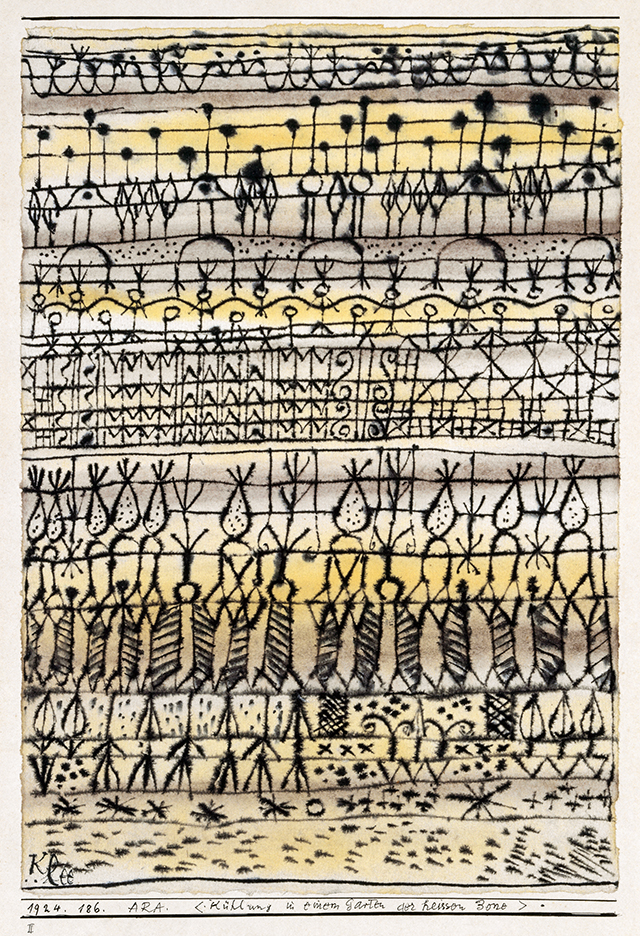 Klee
1924. 186. ARA. <. Kühlung in einem Garten der heissen Zone > .
II